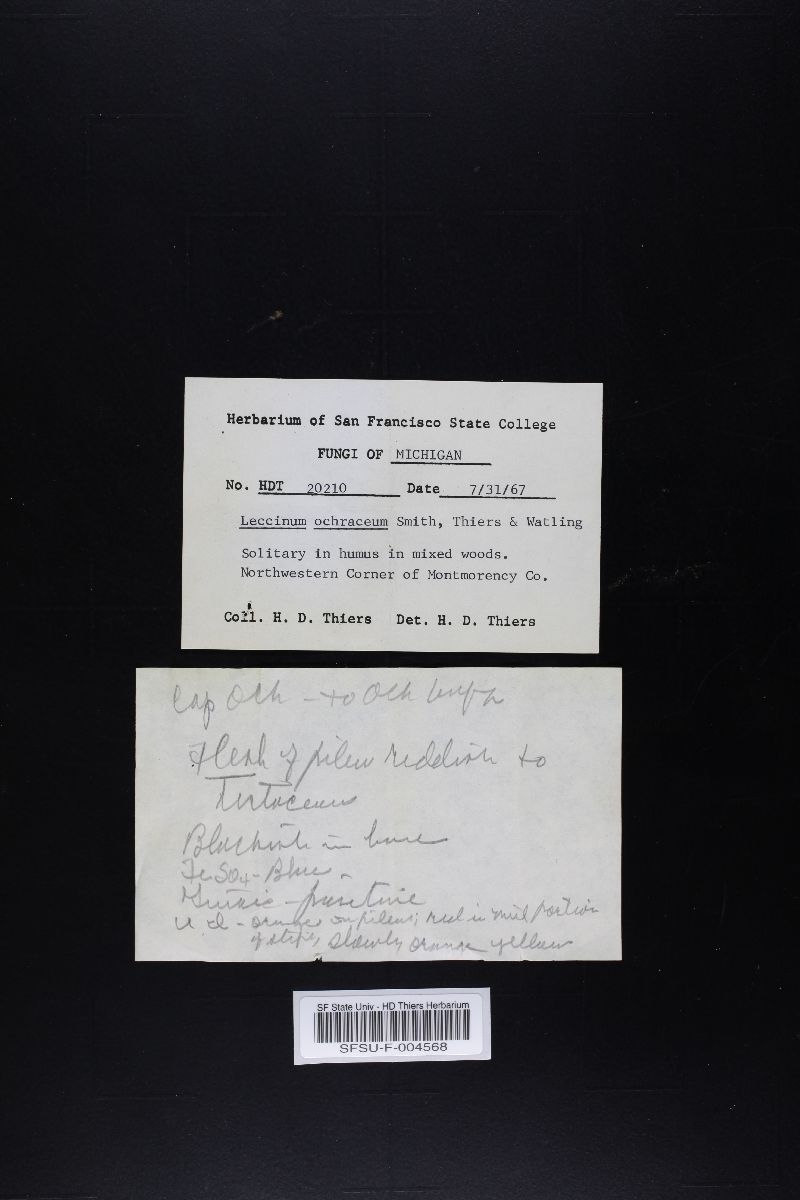 Herbarium of San Francisco State College
FUNGI OF MICHIGAN
No. HDT 20210 Date 7/31/67
Leccinum ochraceum Smith, Thiers & Watling
Solitary in humus in mixed woods.
Northwestern Corner of Montmorency Co.
Coll. H. D. Thiers Det. H. D. Thiers
Cap Och - to Och
Flesh of pileus reddish to
Testaceous
Blackish in base
FeSO4 - Blue
Guiaic - positive
orange on pileus; red in mid portion
of stipe, slowly orange yellow
SF State Univ - HD Thiers Herbarium
SFSU-F-004568